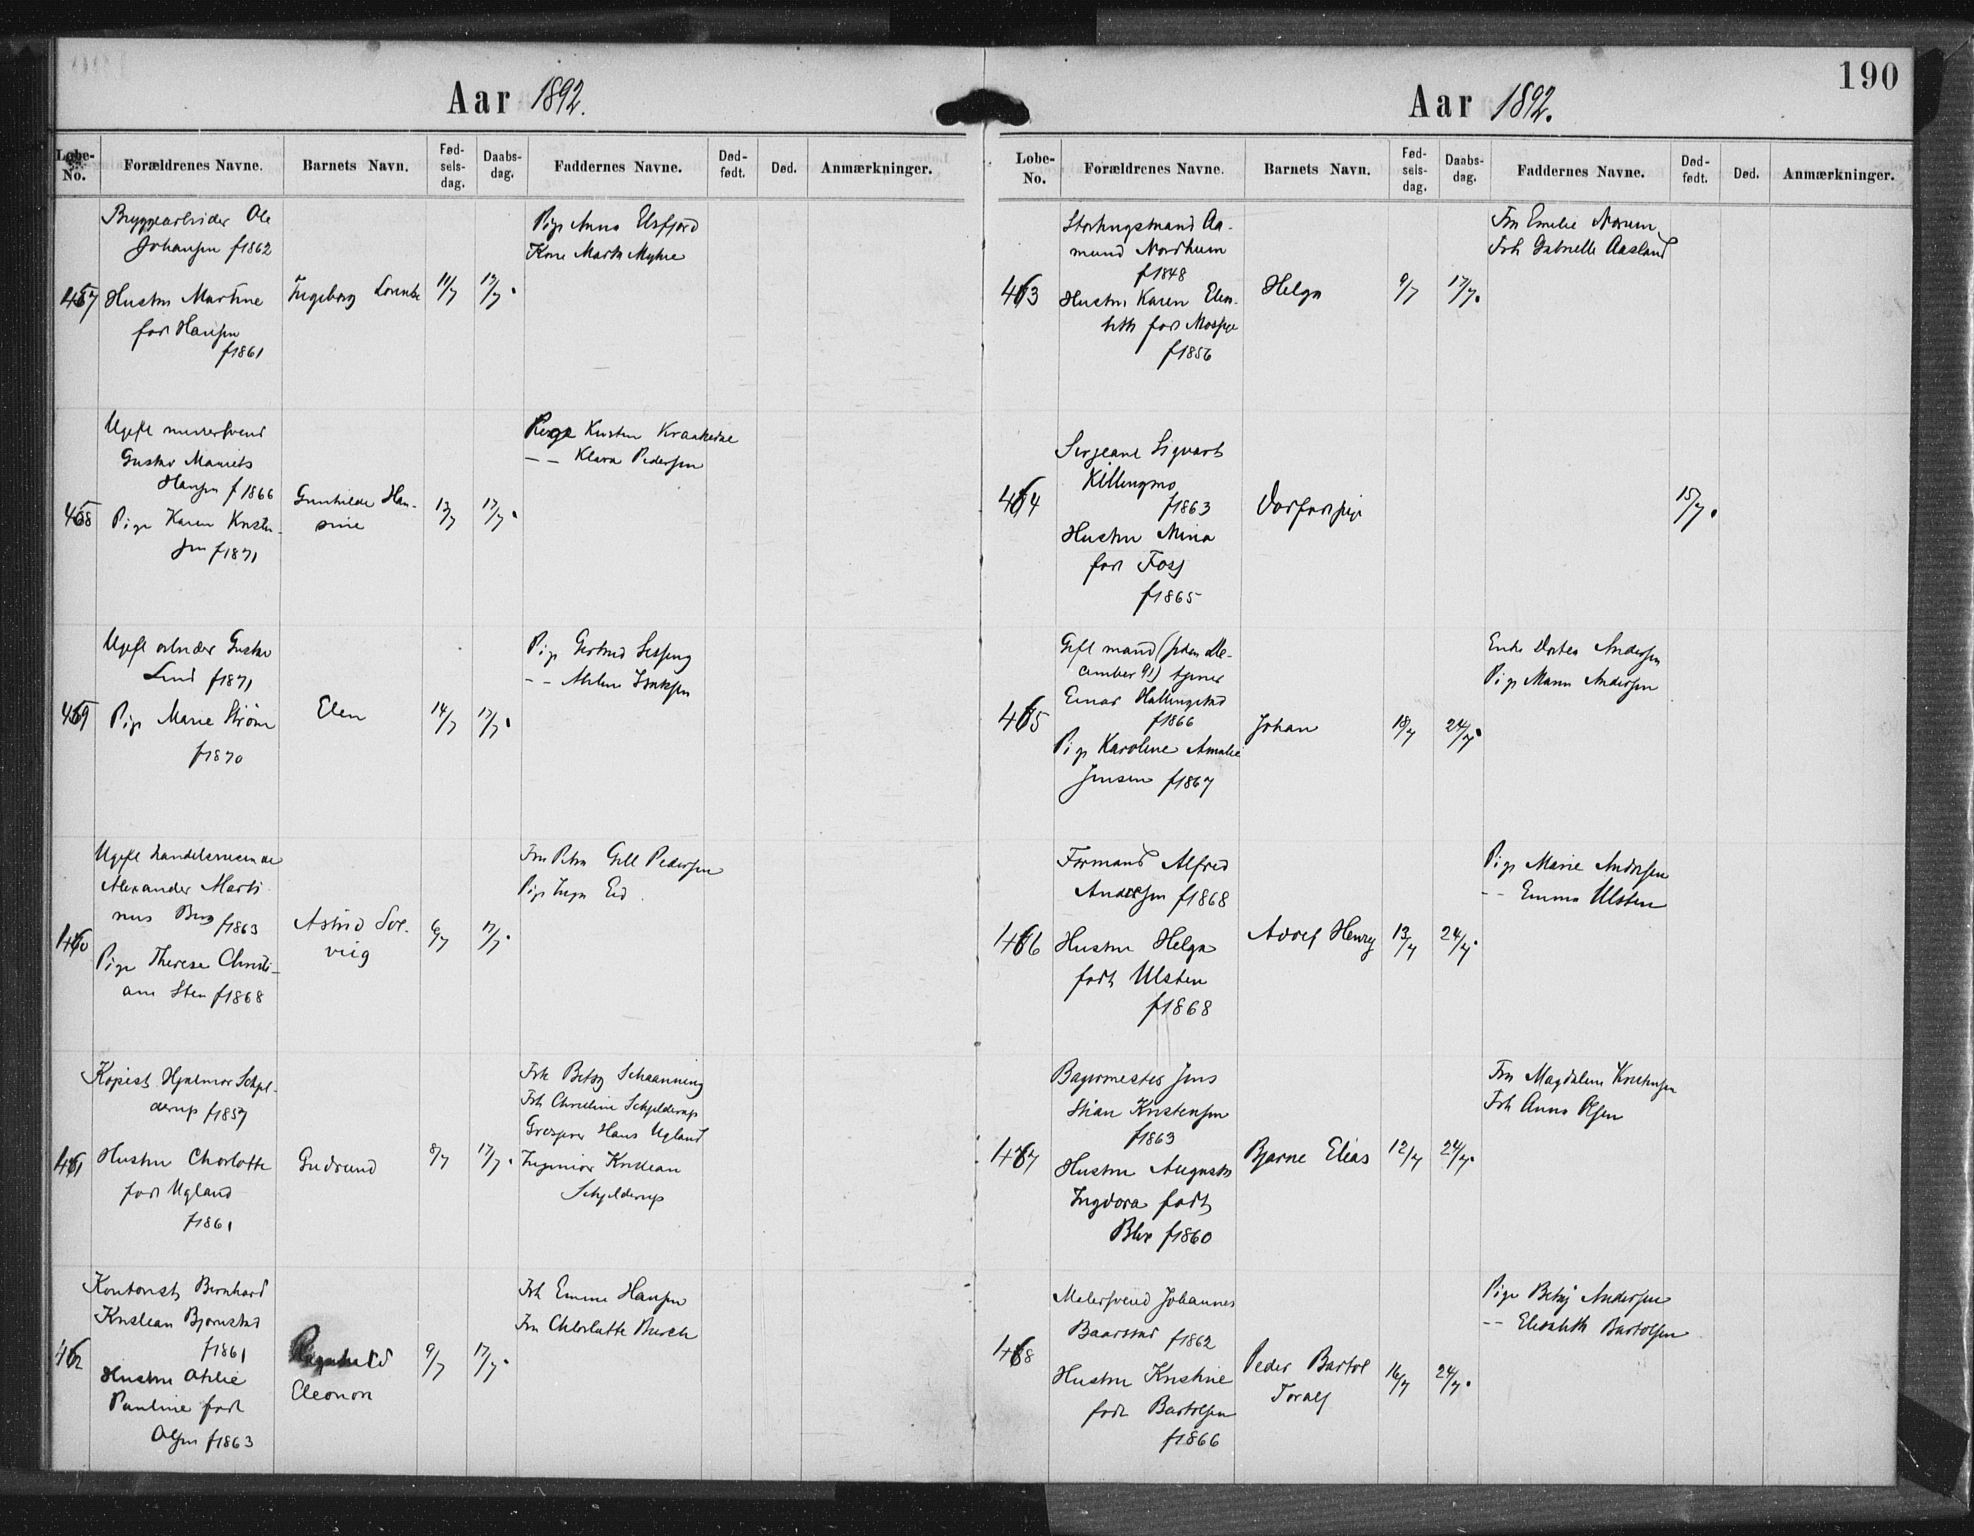 Aar 1892.
Løbe-No. Forældrenes Navne. Barnets Navn. Fød-sels-dag. Daabs-dag. Faddernes Navne. Død-født. Død. Anmærkninger.
Bryggearbeider Ole
Johansen f1862
Hustru Martine
født Hansen
f1861
457
Ingeborg
11/7
17/7.
Pige Anna Elsfjord
Kone Marth Myhre
Ugift murersvend
Gustav Maurits
Hansen f1866
Pige Karen Kristen-
sen f1871
458
Gunhilde Han-
sine
13/7
17/7.
Kirsten Kraakerne
-- Klara Pedersen
Ugift arbeider Gustav
Lund f1871
Pige Marie Strøm
f1870
459
Elen
14/7
17/7.
Pige Gertrud
-- Isaksen
Ugift handelsreisende
Alexander Marti-
nus Berg f1863
Pige Therese Christi-
ane Sten f1868
460
Astrid Sol-
veig
6/7
17/7.
Fru Petra Gill Pedersen
Pige Inga Eid
Kopist Hjalmar Schjel-
derup f1857
Hustru Charlotte
født Ugland
f1861
461
Gudrund
8/7
17/7.
Frk Betsy Schaanning
Frk Christine Schjelderup
Hans Ugland
Ingeniør Kristian
Schjelderup
Kontorist Bernhard
Kristian Bjørnstad
f1861
Hustru Othlie
Pauline født
Olsen f1863
462
Ragnhild
Eleonora
9/7
17/7.
Frk Emma Hansen
Fru Charlotte Busch
190
Aar 1892.
Løbe-No. Forældrenes Navne. Barnets Navn. Fød-sels-dag. Daabs-dag. Faddernes Navne. Død-født. Død. Anmærkninger.
Storthingsmand Aa-
mund Nordheim
f1848
Hustru Karen Elisa-
beth født Mossige
f1856
463
Helga
9/7
17/7.
Fru Emelie Norum
Frk Gabrielle Aasland
Sergeant Sigvart
Killingmo
f1863
Hustru Mina
født Foss
f1865
464
Dødfødt pige
15/7.
Gift mand (siden De-
cember 91) tjener
Einar Hallingstad
f1866
Pige Karoline Amalie
Jensen f1867
465
Johan
18/7
24/7.
Enke Dortea Andersen
Pige Maren Andersen
Formand Alfred
Andersen f1868
Hustru Helga
født Ulsten
f1868
466
Adolf Henry
13/7
24/7.
Pige Marie Andersen
-- Emma Ulsten
Bagermester Jens
Stian Kristensen
f1863
Hustru Augusta
Ingvora født
Blix f1860
467
Bjarne Elias
12/7
24/7.
Fru Magdalene Kristensen
Frk Anna Olsen
Malersvend Johannes
Baarstad f1862
Hustru Kristine
født Bartolsen
f1866
468
Peder Bartol
Toralf
16/7
24/7.
Pige Betsy Andersen
-- Elisabeth Bartolsen